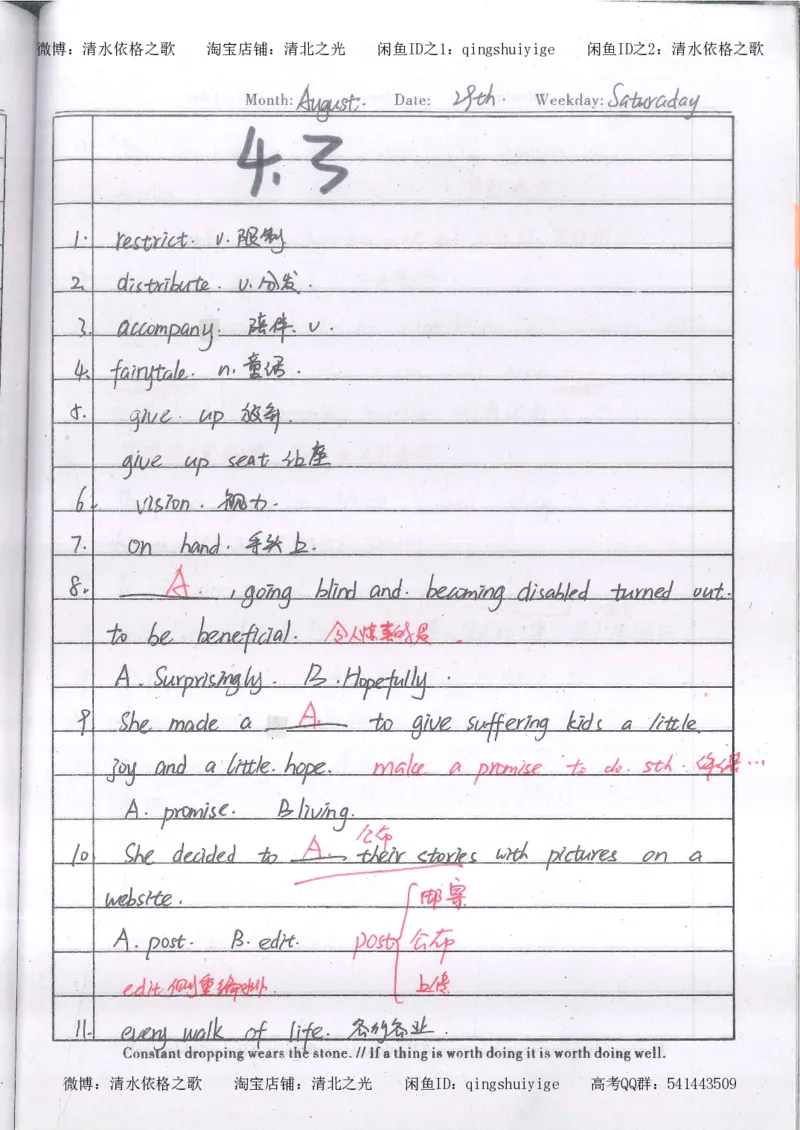 微博：清水依格之歌 淘宝店铺：清北之光 闲鱼ID之1：qingshuiyige 闲鱼ID之2：清水依格之歌
Month: August. Date: 29th. Weekday: Saturaday
4.3
1. restrict. v.限制
2. distribute. v.分发.
3. accompany. 陪伴. v.
4. fairytale. n.童话.
5. give up 放弃.
give up seat 让座
6. vision. 视力.
7. on hand. 手头上.
8. A. , going blind and. becoming disabled turned out.
to be beneficial. 令人惊喜的是.
A. Surprisingly. B. Hopefully.
9. She made a A. to give suffering kids a little.
joy and a little. hope. make a promise to do. sth.
A. promise. B living.
公布
10 She decided to A. their stories with pictures on a
website.
邮寄
A. post. B. edit. post 公布
edit 侧重编 上传
11. every walk of life. 各行各业.
Constant dropping wears the stone. // If a thing is worth doing it is worth doing well.
微博：清水依格之歌 淘宝店铺：清北之光 闲鱼ID：qingshuiyige 高考QQ群：541443509